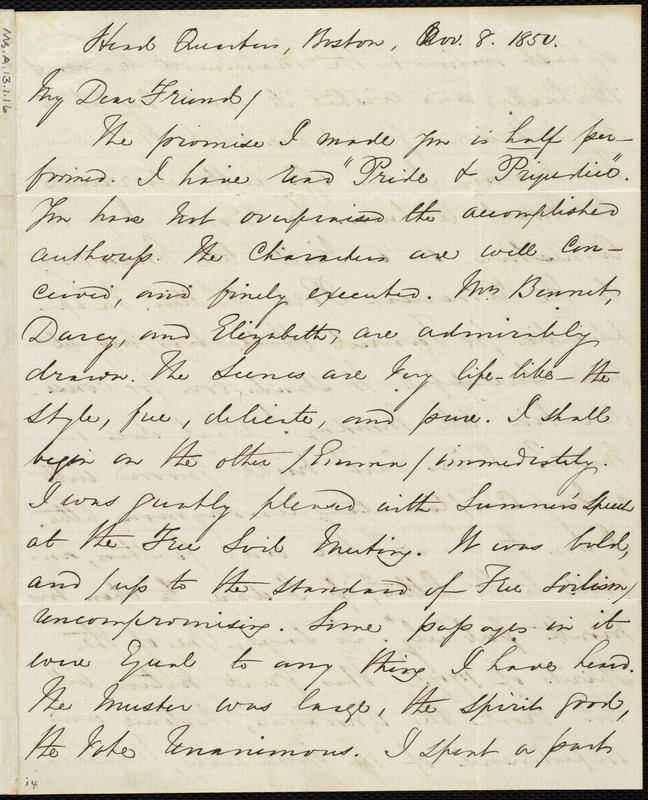 Head Quarters, Boston, Nov. 8. 1850.
My Dear Friend/
The promise I made you is half per-
formed. I have read "Pride & Prejudice".
You have not overpraised the accomplished
authoress. The Characters are well con-
ceived, and finely executed. Mrs Bennet,
Darcy, and Elizabeth, are admirably
drawn. The scenes are very life-like - the
style, free, delicate, and pure. I shall
begin on the other /Emma/ immediately.
I was greatly pleased with Sumner's speech
at the Free Soil Meeting. It was bold,
and /up to the standard of Free Soilism/
uncompromising. Some passages in it
were Equal to any thing I have heard.
The Muster was large, the spirit good,
the Vote Unanimous. I spent a part
Ms.A.13.1.16
14